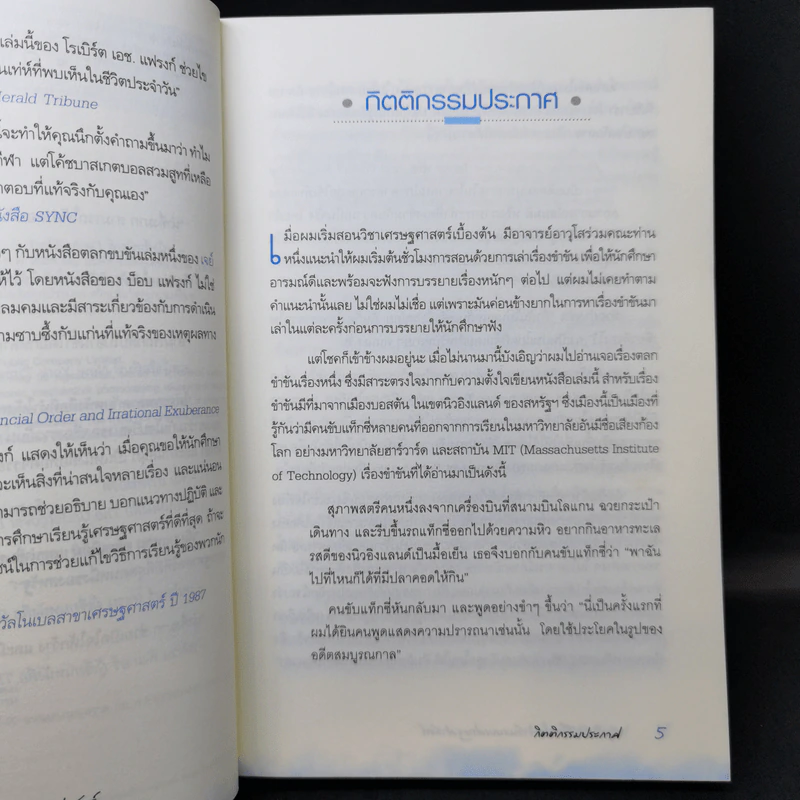 เล่มนี้ของ โรเบิร์ต เอช. แฟรงก์ ช่วยไข
นเท่ห์ที่พบเห็นในชีวิตประจำวัน"
Herald Tribune
จะทำให้คุณนึกตั้งคำถามขึ้นมาว่า ทำไม
กีฬา แต่โค้ชบาสเกตบอลสวมสูทที่เหลือ
าตอบที่แท้จริงกับคุณเอง"
นังสือ SYNC
ๆ กับหนังสือตลกขบขันเล่มหนึ่งของ เจย์
ห้ไว้ โดยหนังสือของ บ็อบ แฟรงก์ ไม่ใช่
ลมคมและมีสาระเกี่ยวข้องกับการดำเนิน
ามซาบซึ้งกับแก่นที่แท้จริงของเหตุผลทาง
ncial Order and Irrational Exuberance
งก์ แสดงให้เห็นว่า เมื่อคุณขอให้นักศึกษา
จะเห็นสิ่งที่น่าสนใจหลายเรื่อง และแน่นอน
ามารถช่วยอธิบาย บอกแนวทางปฏิบัติ และ
การศึกษาเรียนรู้เศรษฐศาสตร์ที่ดีที่สุด ถ้าจะ
ชน์ในการช่วยแก้ไขวิธีการเรียนรู้ของพวกนัก
วัลโนเบลสาขาเศรษฐศาสตร์ ปี 1987
• กิตติกรรมประกาศ •
เมื่อผมเริ่มสอนวิชาเศรษฐศาสตร์เบื้องต้น มีอาจารย์อาวุโสร่วมคณะท่าน
หนึ่งแนะนำให้ผมเริ่มต้นชั่วโมงการสอนด้วยการเล่าเรื่องขำขัน เพื่อให้นักศึกษา
อารมณ์ดีและพร้อมจะฟังการบรรยายเรื่องหนักๆ ต่อไป แต่ผมไม่เคยทำตาม
คำแนะนำนั้นเลย ไม่ใช่ผมไม่เชื่อ แต่เพราะมันค่อนข้างยากในการหาเรื่องขำขันมา
เล่าในแต่ละครั้งก่อนการบรรยายให้นักศึกษาฟัง
แต่โชคก็เข้าข้างผมอยู่นะ เมื่อไม่นานมานี้บังเอิญว่าผมไปอ่านเจอเรื่องตลก
ขำขันเรื่องหนึ่ง ซึ่งมีสาระตรงใจมากกับความตั้งใจเขียนหนังสือเล่มนี้ สำหรับเรื่อง
ขำขันมีที่มาจากเมืองบอสตัน ในเขตนิวอิงแลนด์ ของสหรัฐฯ ซึ่งเมืองนี้เป็นเมืองที่
รู้กันว่ามีคนขับแท็กซี่หลายคนที่ออกจากการเรียนในมหาวิทยาลัยอันมีชื่อเสียงก้อง
โลก อย่างมหาวิทยาลัยฮาร์วาร์ด และสถาบัน MIT (Massachusetts Institute
of Technology) เรื่องขำขันที่ได้อ่านมาเป็นดังนี้
สุภาพสตรีคนหนึ่งลงจากเครื่องบินที่สนามบินโลแกน ฉวยกระเป๋า
เดินทาง และรีบขึ้นรถแท็กซี่ออกไปด้วยความหิว อยากกินอาหารทะเล
รสดีของนิวอิงแลนด์เป็นมื้อเย็น เธอจึงบอกกับคนขับแท็กซี่ว่า "พาฉัน
ไปที่ไหนก็ได้ที่มีปลาคอดให้กิน"
คนขับแท็กซี่หันกลับมา และพูดอย่างขำๆ ขึ้นว่า "นี่เป็นครั้งแรกที่
ผมได้ยินคนพูดแสดงความปรารถนาเช่นนั้น โดยใช้ประโยคในรูปของ
อดีตสมบูรณกาล"
กิตติกรรมประกาศ 5